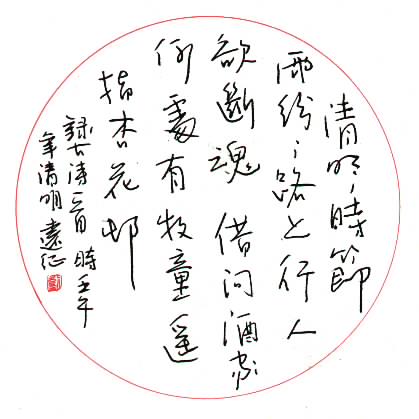 清明時節
雨紛々路上行人
欲斷魂借问酒家
何處有牧童遥
指杏花邨
錄古诗一首時壬午
年清明